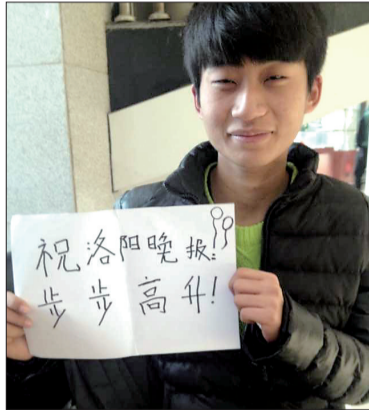 祝洛阳晚报:
步步高升!